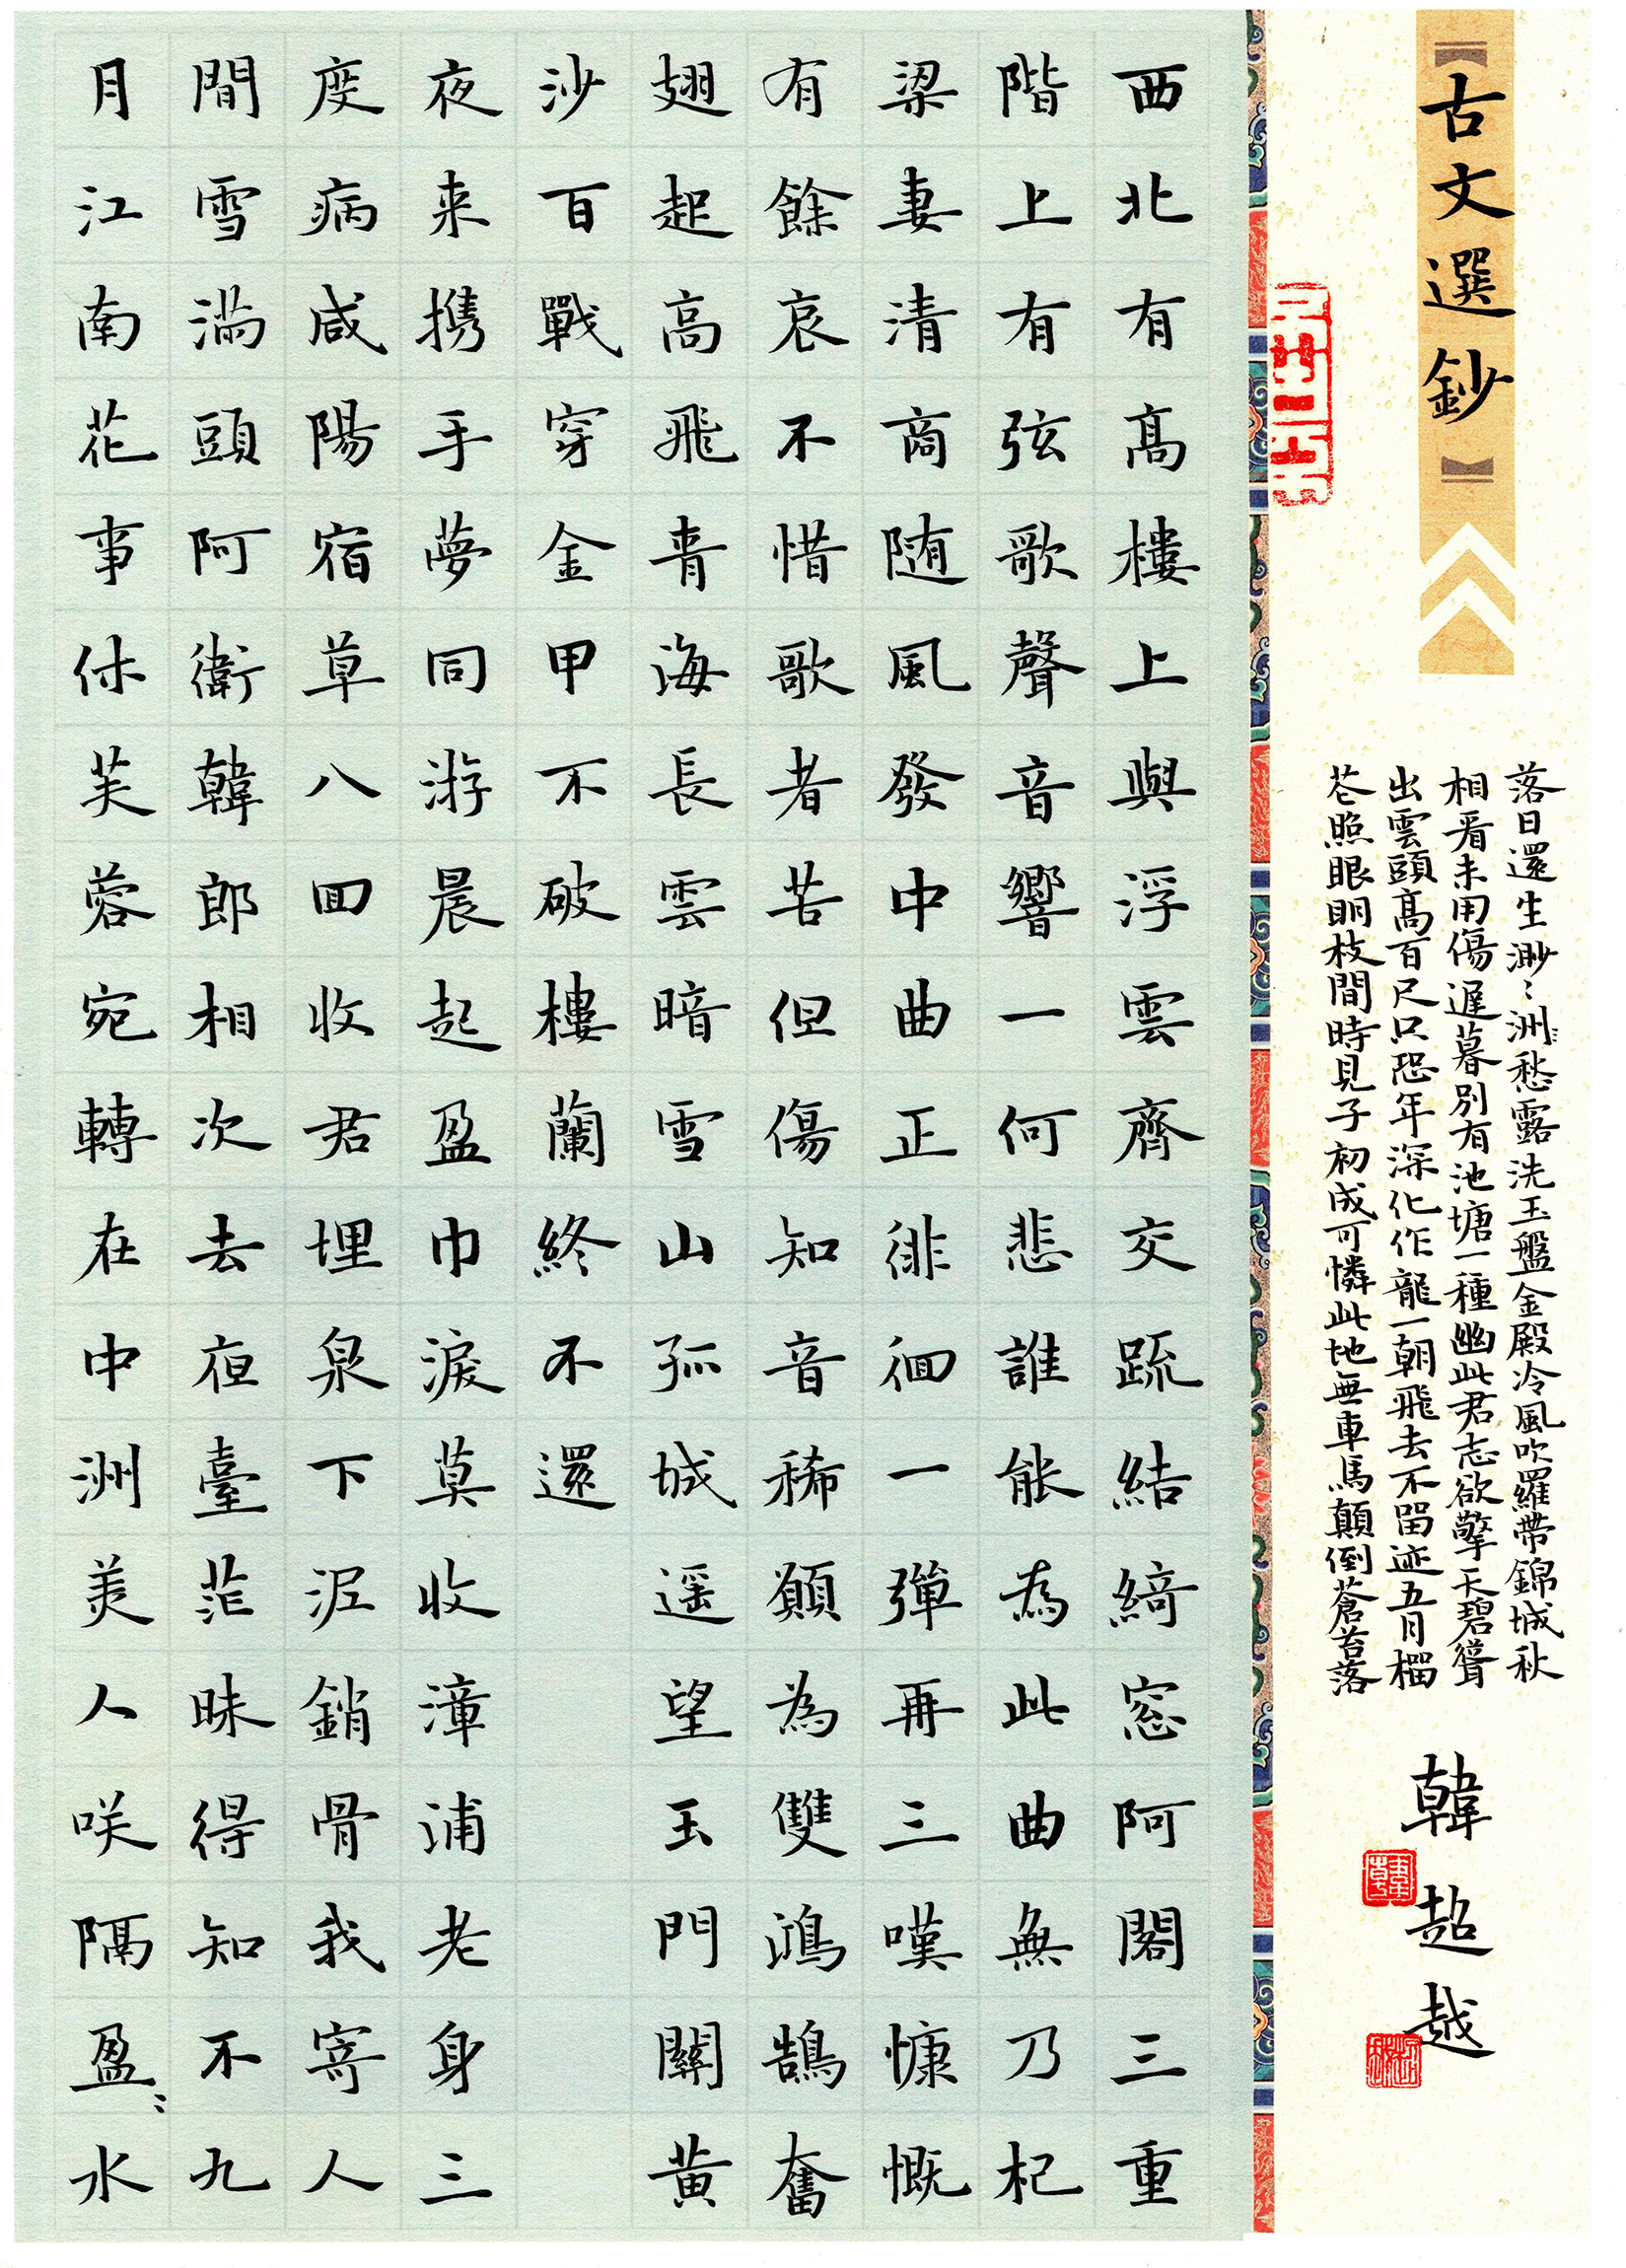 【古文選鈔】
落日還生渺〻洲愁露洗玉盤金殿冷風吹羅帶錦城秋
相看未用傷遲暮別有池塘一種幽此君志欲擎天碧聳
出雲頭高百尺只恐年深化作龍一朝飛去不留迹五月榴
花照眼明枝間時見子初成可憐此地無車馬顛倒蒼苔落
韓超越
西北有高樓上與浮雲齊交疏結綺窓阿閣三重
階上有弦歌聲音響一何悲誰能為此曲無乃杞
梁妻清商随風發中曲正徘徊一彈再三嘆慷慨
有餘哀不惜歌者苦但傷知音稀願為雙鴻鵠奮
翅起高飛青海長雲暗雪山孤城遥望玉門關黄
沙百戰穿金甲不破樓蘭終不還
夜来携手夢同游晨起盈巾淚莫收漳浦老身三
度病咸陽宿草八回收君埋泉下泥銷骨我寄人
間雪滿頭阿衛韓郎相次去夜臺茫昧得知不九
月江南花事休芙蓉宛轉在中洲美人咲隔盈〻水